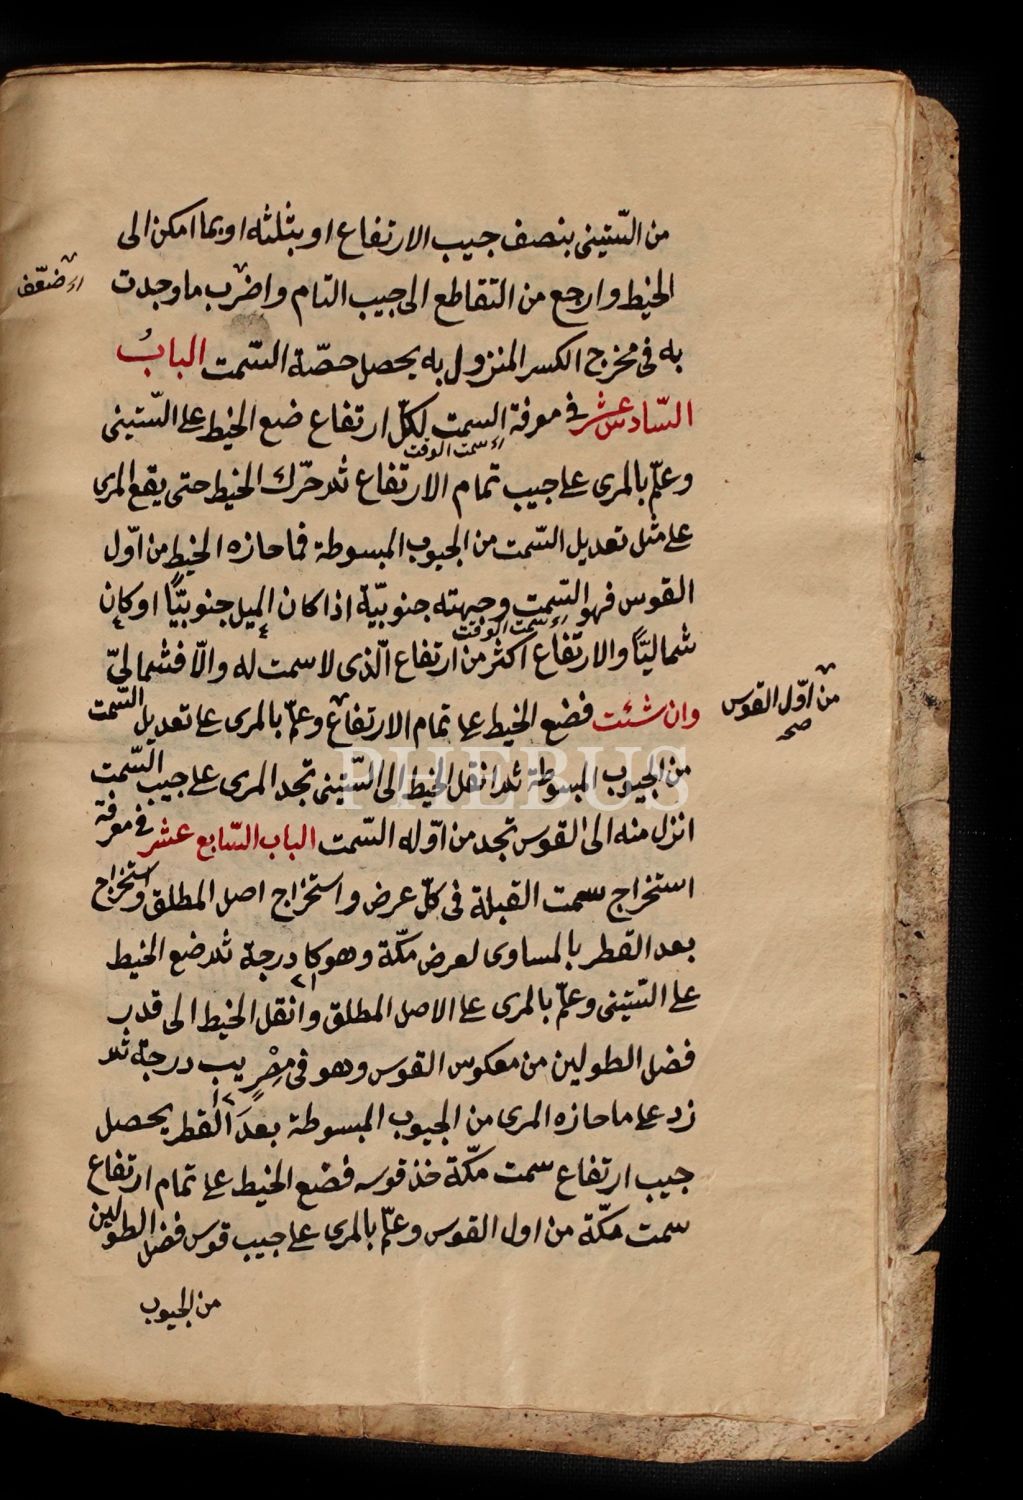 من الستّينى بنصف جيب الارتفاع او بثلثه او بما امكن الى
الخيط وارجع من التقاطع الى جيب التمام واضرب ما وجدت
اى ضعّف
به فى مخرج الكسر المنزول به يحصل حصّة السّمت البابُ
السّادس عشر فى معرفة السمت لكلّ ارتفاع ضع الخيط على السّتينى
اى سمت الوقت
وعلّم بالمرى على جيب تمام الارتفاع ثم حرّك الخيط حتى يقع المرى
على مثل تعديل السّمت من الجيوب المبسوطة فما حازه الخيط من اوّل
القوس فهو السّمت وجهته جنوبيّة اذا كان الميل جنوبيّاً او كان
اى سمت الوقت
شماليّاً والارتفاع اكثر من ارتفاع الّذى لا سمت له والّا فشمالىّ
وان شئت فضع الخيط على تمام الارتفاع وعلّم بالمرى على تعديل السّمت
من اوّل القوس
صح
من الجيوب المبسوطة ثم انقل الخيط الى السّتينى تجد المرى على جيب السّمت
انزل منه الى القوس تجد من اوّله السّمت الباب السّابع عشر فى معرفة
استخراج سمت القبلة فى كلّ عرض واستخراج اصل المطلق واستخراج
بعد القطر بالمساوى لعرض مكّة وهو كا درجة ثم ضع الخيط
٢١
على السّتينى وعلّم بالمرى على الاصل المطلق وانقل الخيط الى قدر
فضل الطولين من معكوس القوس وهو فى مِصْرٍ يب درجة ثم
١٢
زد على ما حازه المرى من الجيوب المبسوطة بعدَ القطر يحصل
جيب ارتفاع سمت مكّة خذ قوسه فضع الخيط على تمام ارتفاع
سمت مكّة من اول القوس وعلّم بالمرى على جيب قوس فضل الطولين
من الجيوب
PHEBUS